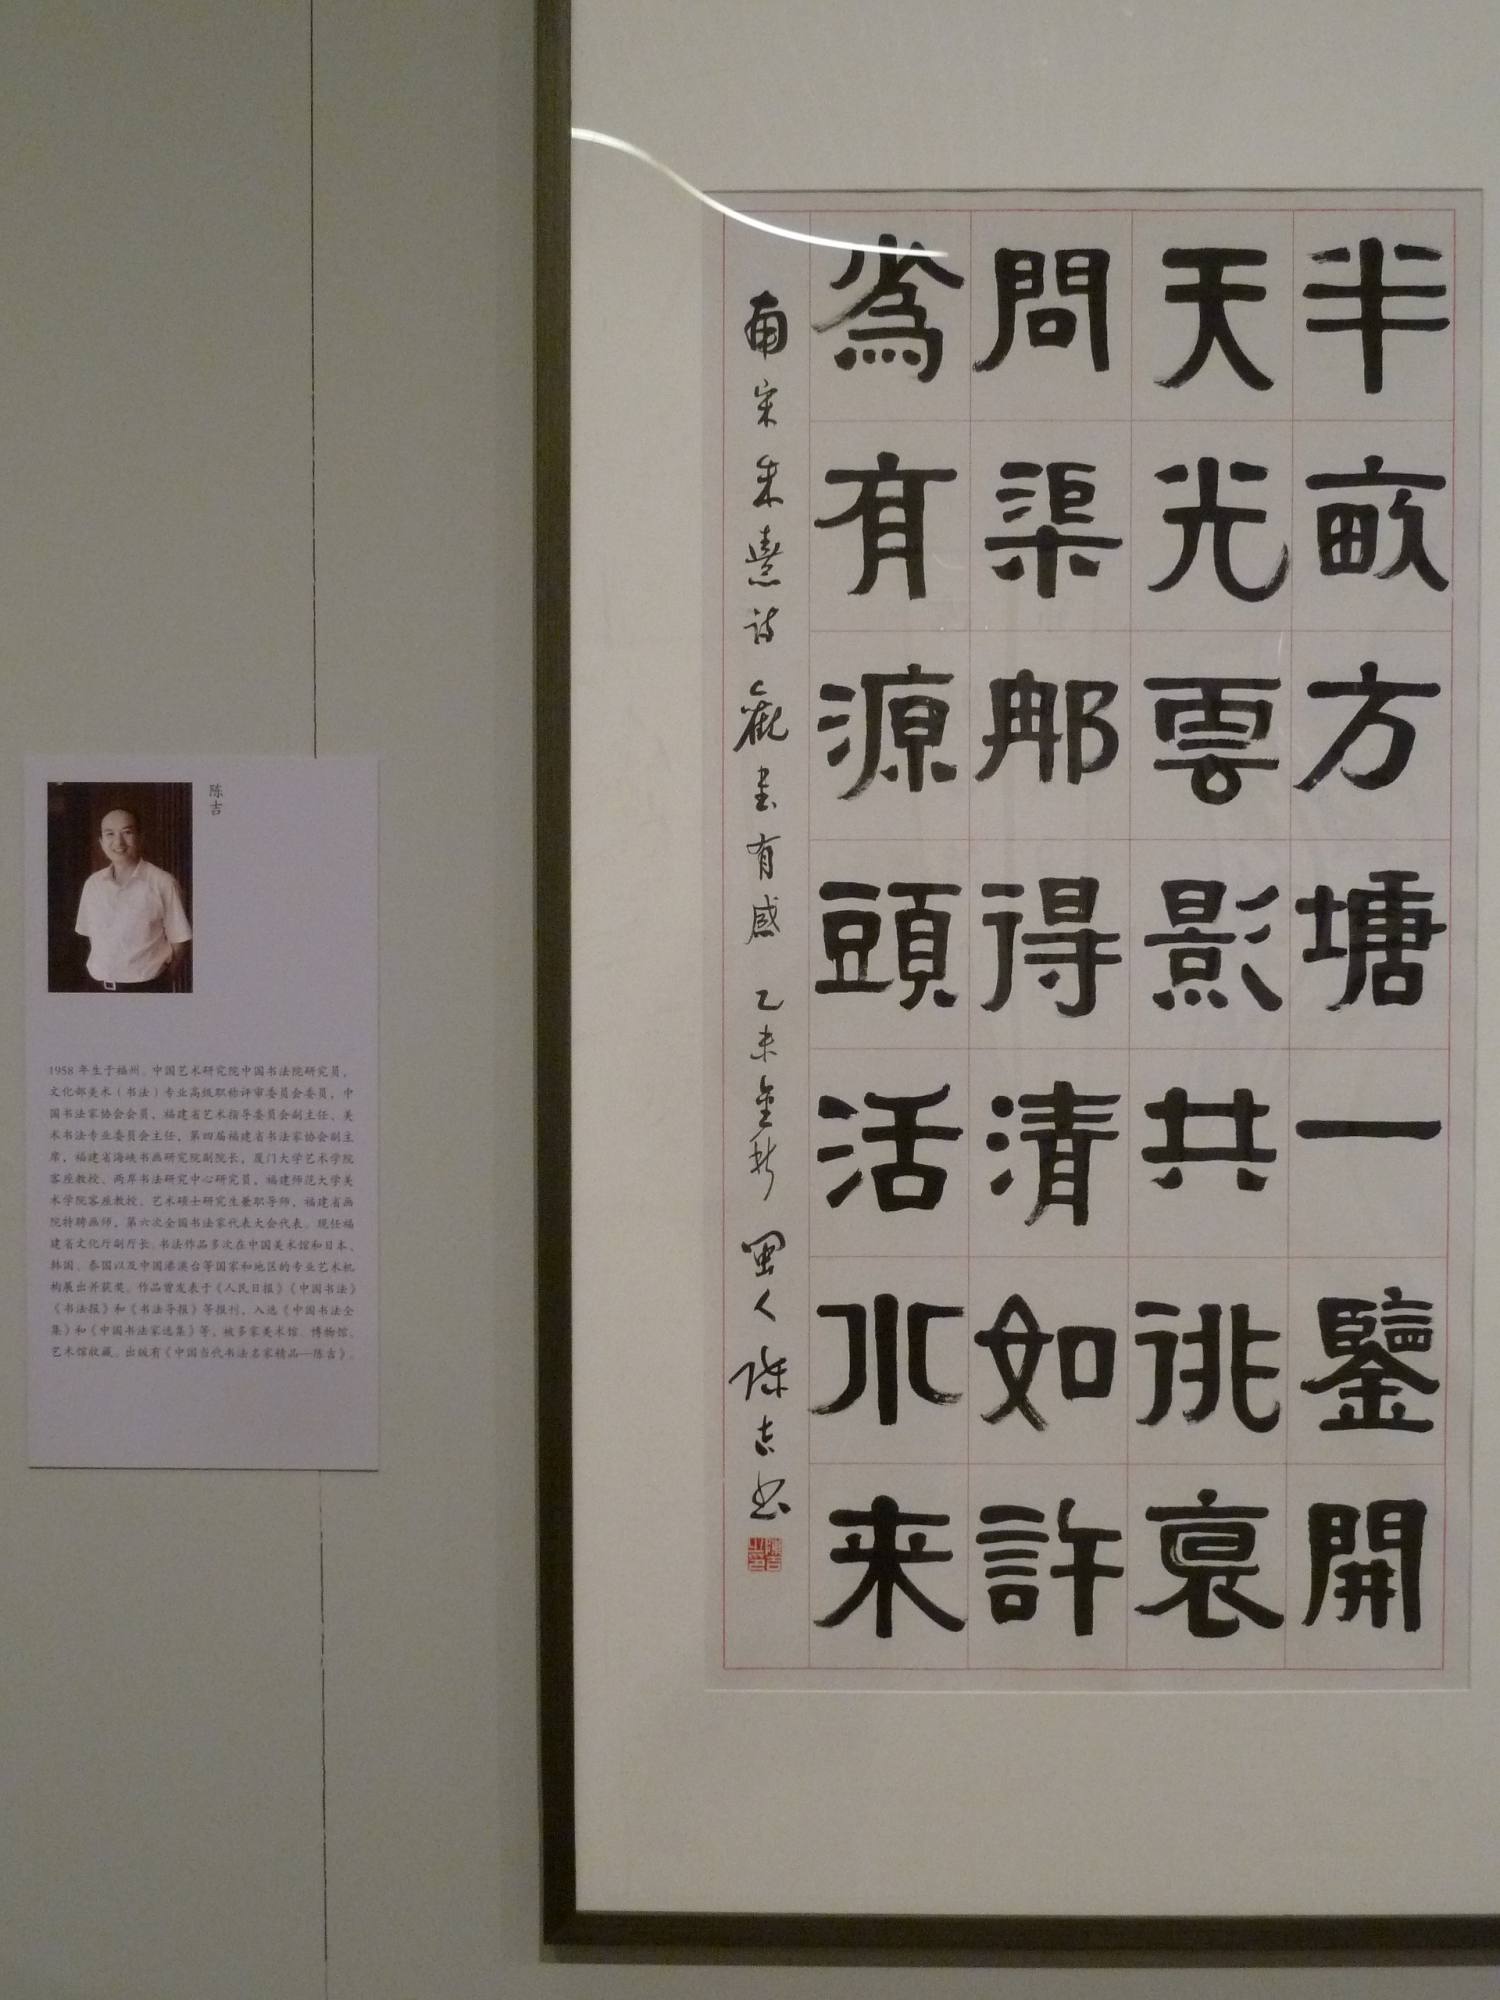 陈吉
1958 年生于福州。中国艺术研究院中国书法院研究员,
文化部美术（书法）专业高级职称评审委员会委员,中
国书法家协会会员,福建省艺术指导委员会副主任、美
术书法专业委员会主任,第四届福建省书法家协会副主
席,福建省海峡书画研究院副院长,厦门大学艺术学院
客座教授、两岸书法研究中心研究员,福建师范大学美
术学院客座教授、艺术硕士研究生兼职导师,福建省画
院特聘画师,第六次全国书法家代表大会代表。现任福
建省文化厅副厅长。书法作品多次在中国美术馆和日本、
韩国、泰国以及中国港澳台等国家和地区的专业艺术机
构展出并获奖。作品曾发表于《人民日报》《中国书法》
《书法报》和《书法导报》等报刊,入选《中国书法全
集》和《中国书法家选集》等,被多家美术馆、博物馆、
艺术馆收藏。出版有《中国当代书法名家精品—陈吉》。
半畝方塘一鑒開
天光雲影共徘裛
問渠那得清如許
為有源頭活水来
南宋朱熹詩觀書有感 乙未金秋 閩人陳吉书
陳吉之印